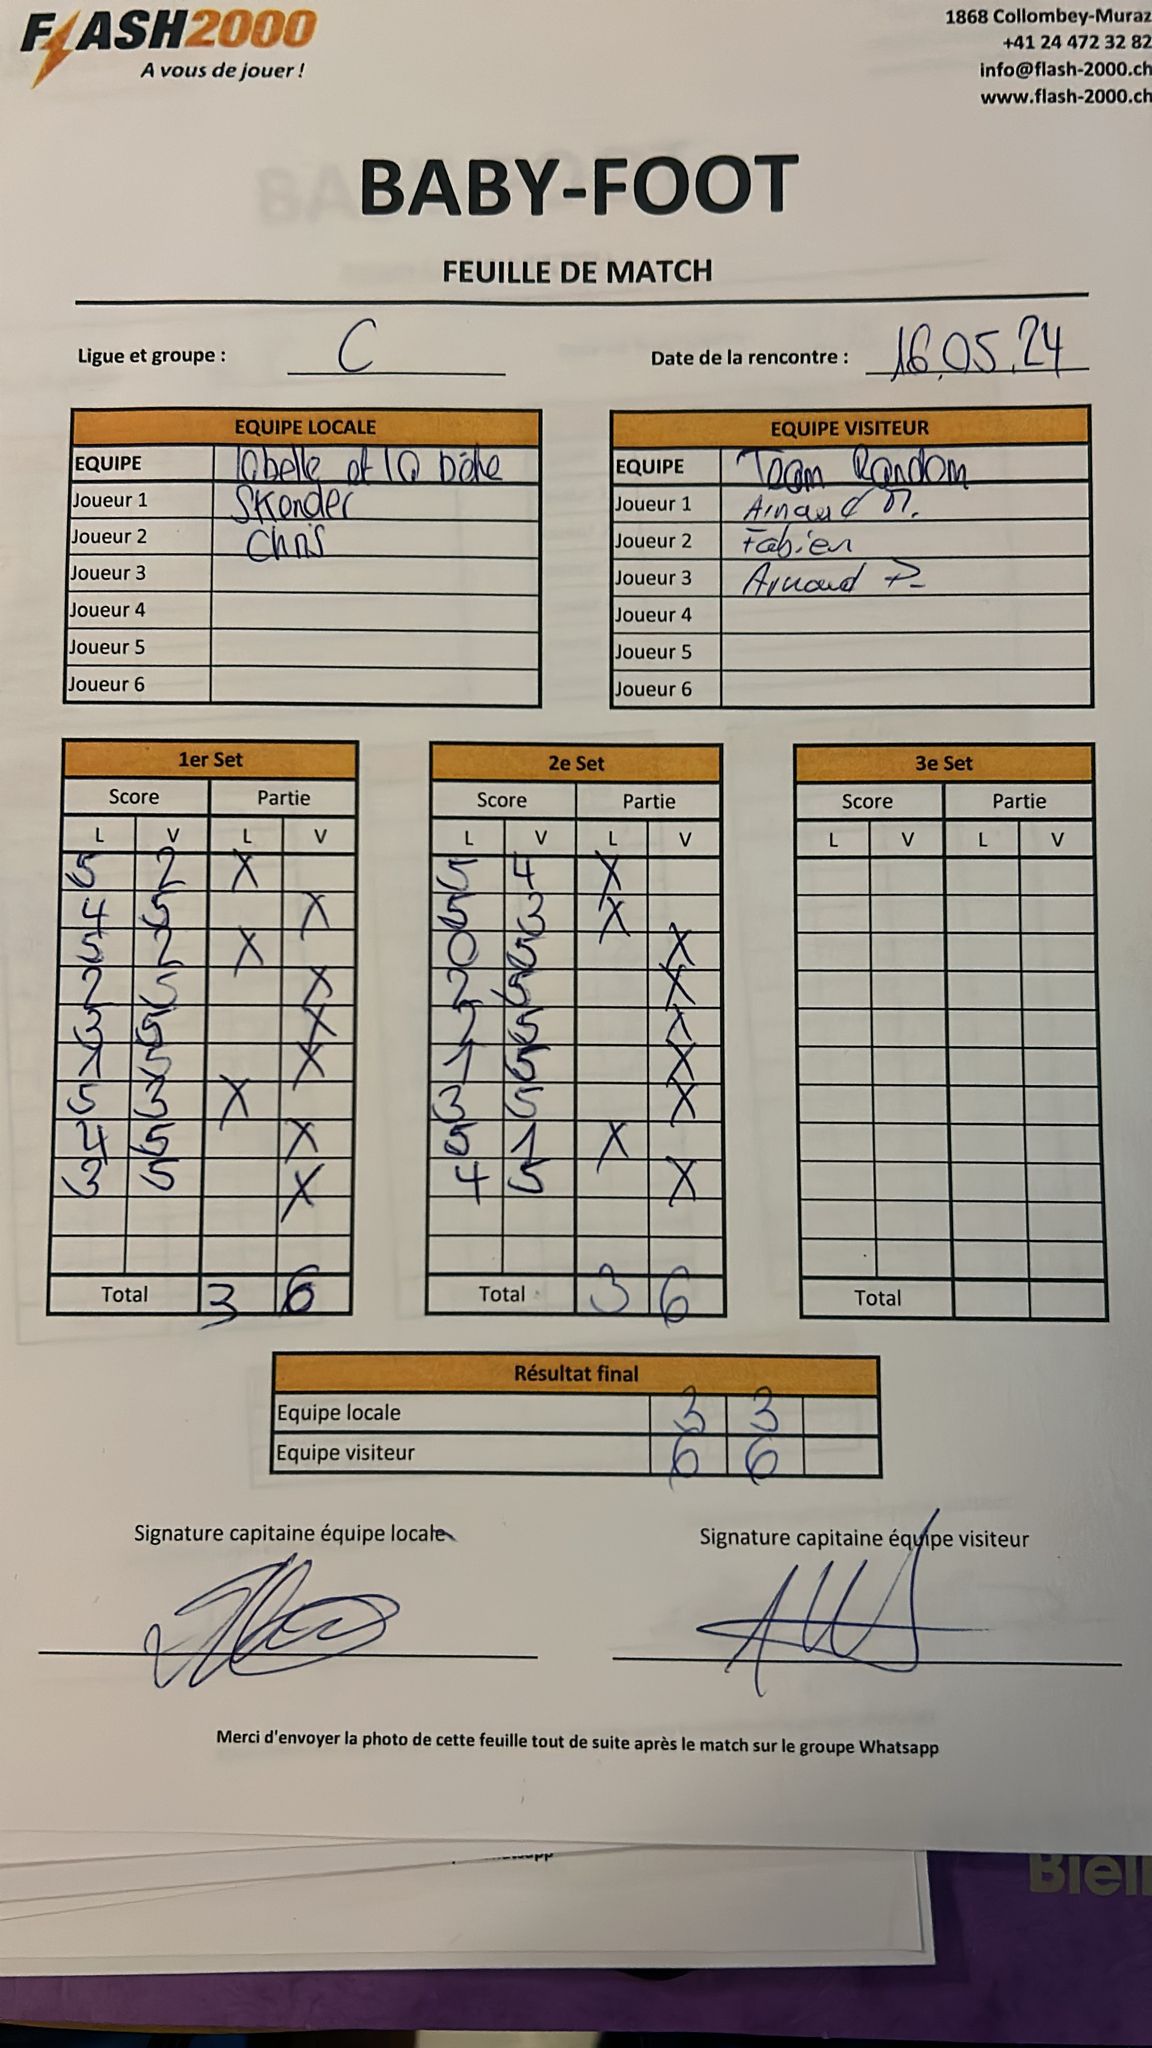 FLASH2000
A vous de jouer !
1868 Collombey-Muraz
+41 24 472 32 82
info@flash-2000.ch
www.flash-2000.ch
BABY-FOOT
FEUILLE DE MATCH
Ligue et groupe : C
Date de la rencontre : 16.05.24
EQUIPE LOCALE
EQUIPE labelle et la bête
Joueur 1 Skender
Joueur 2 Chris
Joueur 3
Joueur 4
Joueur 5
Joueur 6
EQUIPE VISITEUR
EQUIPE Team Random
Joueur 1 Arnaud M.
Joueur 2 Fabien
Joueur 3 Arnaud P.
Joueur 4
Joueur 5
Joueur 6
1er Set
Score Partie
L V L V
5 2 X
4 5 X
5 2 X
2 5 X
3 5 X
1 5 X
5 3 X
4 5 X
3 5 X
Total 3 6
2e Set
Score Partie
L V L V
5 4 X
5 3 X
0 5 X
2 5 X
2 5 X
1 5 X
3 5 X
5 1 X
4 5 X
Total 3 6
3e Set
Score Partie
L V L V
Total
Résultat final
Equipe locale 3 3
Equipe visiteur 6 6
Signature capitaine équipe locale
Signature capitaine équipe visiteur
Merci d'envoyer la photo de cette feuille tout de suite après le match sur le groupe Whatsapp